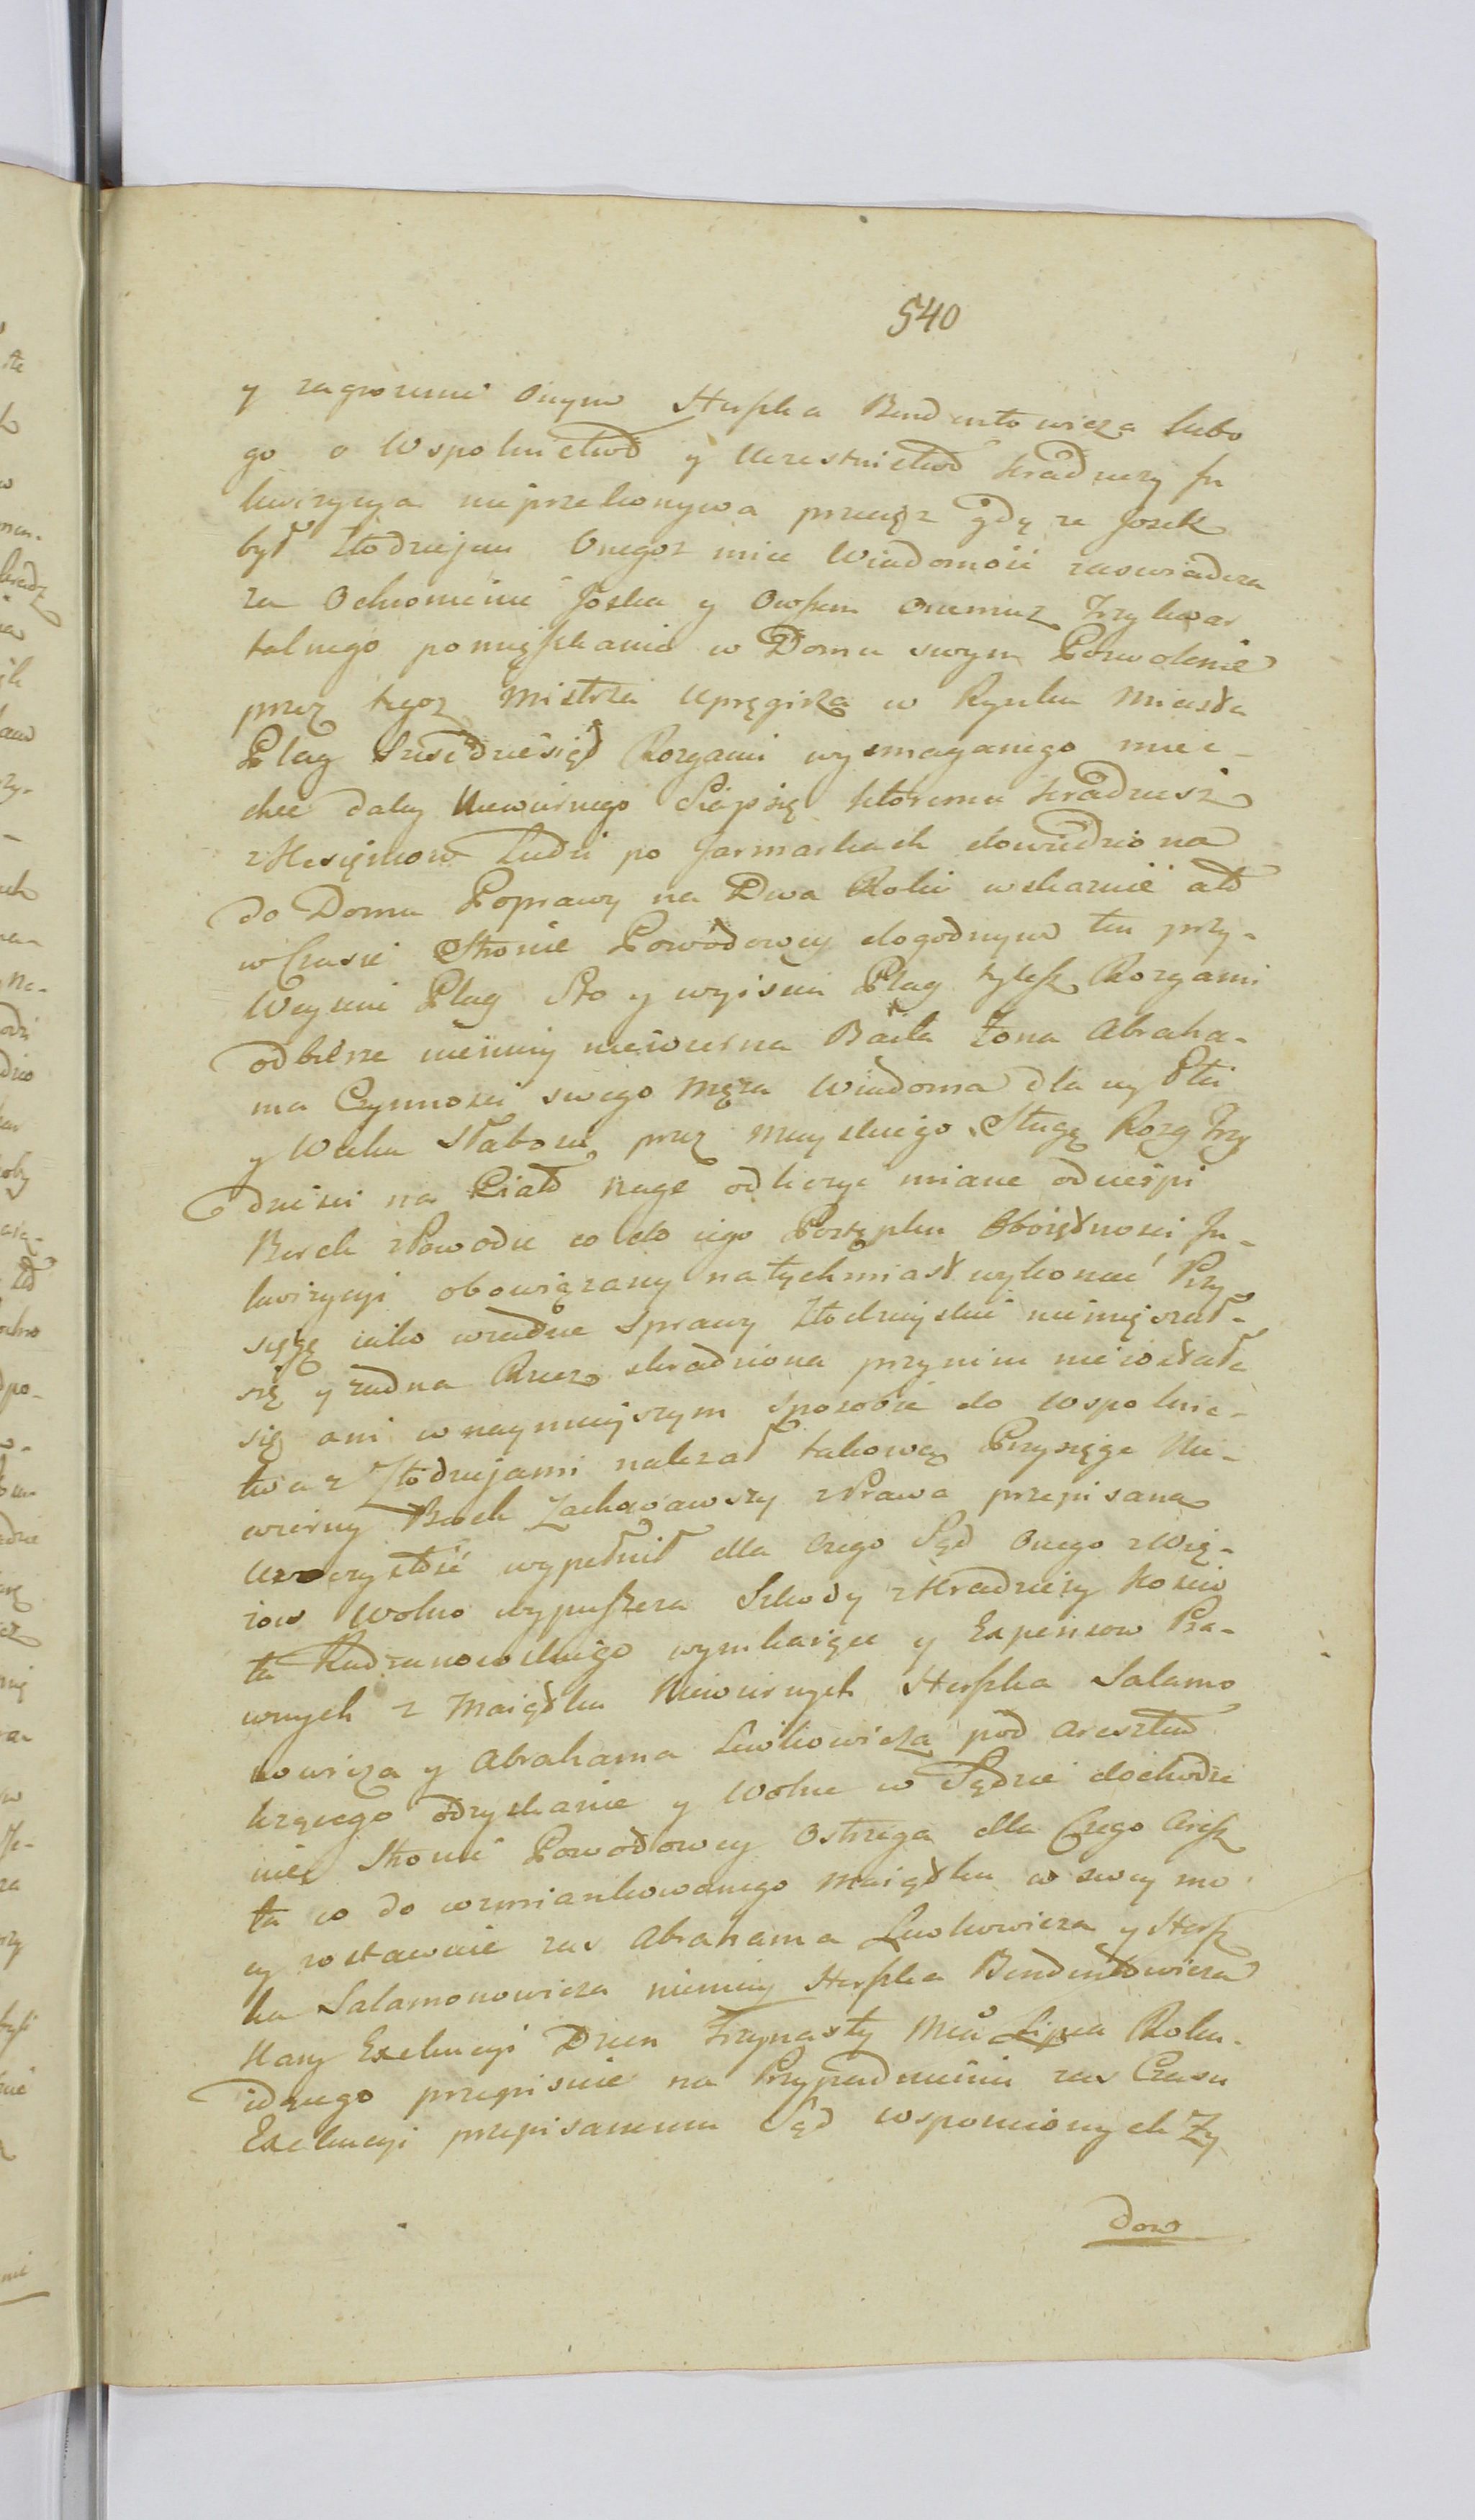 540
y zagrożenie onym Herszka Bendentowicza lubo
go o Wspolnictwo y Uczestnictwo kradzezy In
kwizycya nieprzekonywa przeciez gdy ze Josek
był Złodziejem Onegoz mieć Wiadomość zaswiadcza
za Ochronienie Joska y Owszem onemuz Trzykwar
talnego pomięszkania w Domu swym Pozwolenie
przez tegoz Mistrza Upręgirza w Rynku Miasta
Plag Sześcdziesiąt Rozgami wysmaganego miec
chce daley Niewiernego któremu kradziesz
z Kesięniow Ludzi po Jarmarkach dowiedziona
do Domu Poprawy na Dwa Roki wskazuie ato
w Czasie Stronie Powodowey dogodnym ten przy-
Weysciu Plag Sto y wyisciu Plag tylesz Rozgami
odbierze niemniey niewierna Baila Zona Abraha-
ma Czynnosci swego Męza Wiadoma dla iey Płci
y Wieku Słabości przez mieyskiego Sługę Rozg Trzy
dzieści na Ciało nage odliczyc miane odcierpi
Berek zPowodu co do iego Postępku Oboiętności In-
kwizycyi obowiązany natychmiast wykonać Przy-
sięgę iako wzadne Sprawy Złodzieyskie niemięszał-
się y zadna Rzecz skradziona przynim niezostała
się ani w naymnieyszym Sposobie do Wspolnic-
twa z Złodziejami nalezał takową Przysięge Nie-
wierny Berek Zachowawszy zPrawa przepisaną
Uroczystość wypełnił dla czego Sąd onego zWię-
zow Wolno wypuszcza Szkody zKradziezy Koscio
ła Radzanowskiego wynikaiące y Expensow Pra-
wnych z Maiątku Niewiernych Herszka Salamo
nowicza y Abrahama Lewkowicza pod Aresztem
będącego odzyskanie y Wolne w Sądzie dochodze
nie Stronie Powodowey Ostrzega dla Czego Aresz
ta co do wzmiankowanego Maiątku w swey mo
cy zostawuie zas Abrahama Lewkowicza y Hersz
ka Salamonowicza niemniey Herszka Bendentowicza
Kary Exekucyi Dzien Trzynasty Mca Lipca Roku-
idącego przepisuie na Przypadnieniu zas Czasu
Exekucyi przepisanemu Sąd wspomnionych Zy
dow